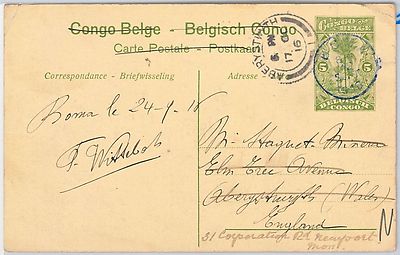 Congo Belge - Belgisch Congo
Carte Postale - Postkaart
Correspondance - Briefwisseling
Adresse
CONGO BELGE
5 5
BELGISCH CONGO
ABERYSTWYTH
Boma le 24-9-16
F. Wittebols
Mr Haquet Minera
Elm Tree Avenue
Aberystwyth (Wales)
England
31 Corporation Rd Newport
Mon.
N